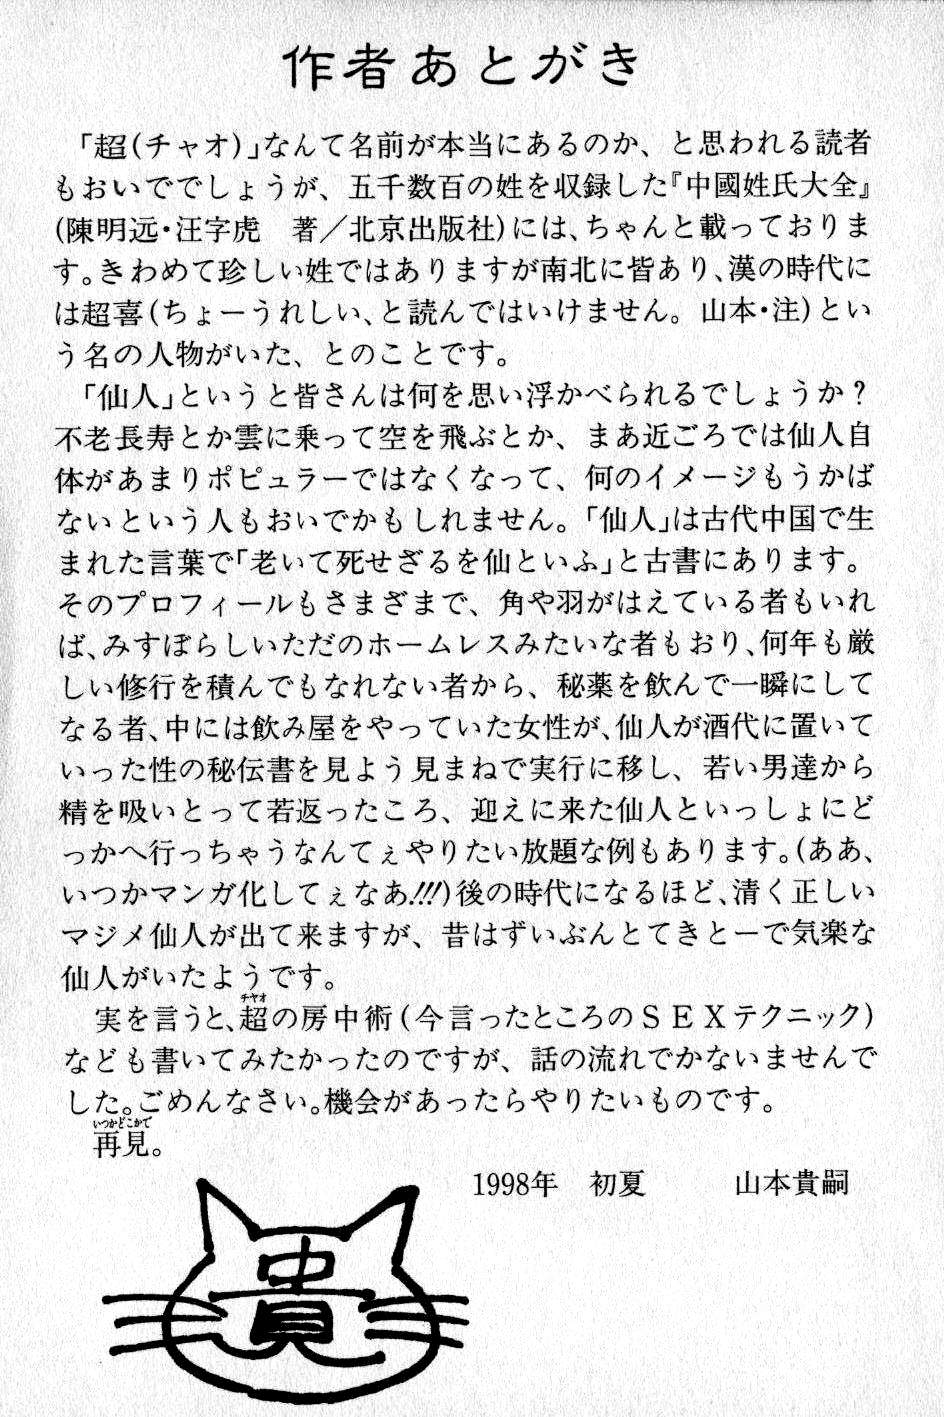 作者あとがき
「超(チャオ)」なんて名前が本当にあるのか、と思われる読者
もおいででしょうが、五千数百の姓を収録した『中國姓氏大全』
(陳明远・汪字虎　著／北京出版社)には、ちゃんと載っておりま
す。きわめて珍しい姓ではありますが南北に皆あり、漢の時代に
は超喜(ちょーうれしい、と読んではいけません。山本・注)とい
う名の人物がいた、とのことです。
「仙人」というと皆さんは何を思い浮かべられるでしょうか？
不老長寿とか雲に乗って空を飛ぶとか、まあ近ごろでは仙人自
体があまりポピュラーではなくなって、何のイメージもうかば
ないという人もおいでかもしれません。「仙人」は古代中国で生
まれた言葉で「老いて死せざるを仙といふ」と古書にあります。
そのプロフィールもさまざまで、角や羽がはえている者もいれ
ば、みすぼらしいただのホームレスみたいな者もおり、何年も厳
しい修行を積んでもなれない者から、秘薬を飲んで一瞬にして
なる者、中には飲み屋をやっていた女性が、仙人が酒代に置いて
いった性の秘伝書を見よう見まねで実行に移し、若い男達から
精を吸いとって若返ったころ、迎えに来た仙人といっしょにど
っかへ行っちゃうなんてぇやりたい放題な例もあります。(ああ、
いつかマンガ化してぇなあ!!!)後の時代になるほど、清く正しい
マジメ仙人が出て来ますが、昔はずいぶんとてきとーで気楽な
仙人がいたようです。
チャオ
実を言うと、超の房中術(今言ったところのＳＥＸテクニック)
なども書いてみたかったのですが、話の流れでかないませんで
した。ごめんなさい。機会があったらやりたいものです。
いつかどこかで
再見。
1998年　初夏　　　山本貴嗣
貴